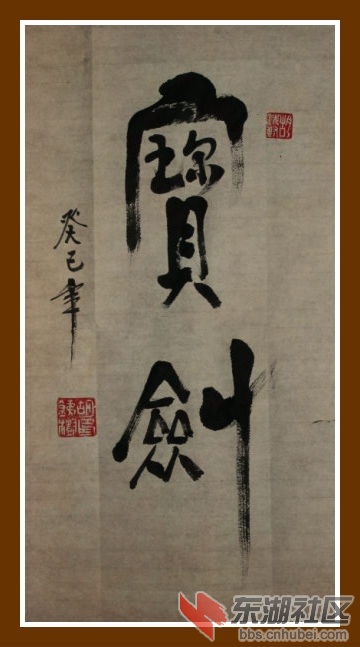 寳劍
癸巳年
东湖社区
bbs.cnhubei.com